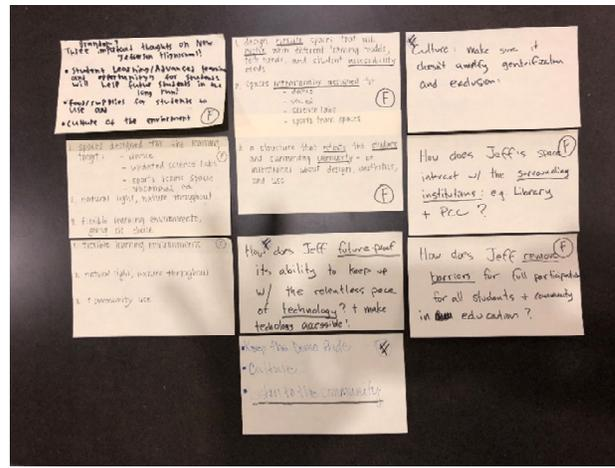 Three important thoughts on New Jefferson
• Student Learning/Advanced
and opportunities for students
will help future students in the
long run!
• food/supplies for students to
use and
• culture of the enviroment
F
1. spaces designed for the learning
target:
- dance
- updated science labs
- sports teams space
F
2. natural light, nature throughout
3. flexible learning environments,
1. flexible learning environments
F
2. natural light, nature throughout
3. community use
1. design flexible spaces that will
with different learning models,
and student accessibility
needs
2. spaces intentionally designed for
- dance
- science labs
- sports team spaces
F
3. a structure that the culture
and surrounding community -
intentional about design, aesthetics,
and use
F
How does Jeff future proof
its ability to keep up
w/ the relentless pace
of technology? + make
F
• Keep the Demo Pride
• Culture
• to the community
F
Culture: make sure it
doesn't amplify gentrification
and exclusion.
F
How does Jeff's space
interact w/ the surrounding
institutions: e.g. Library
+ PCC?
F
How does Jeff remove
barriers for full participation
for all students + community
in education?
F